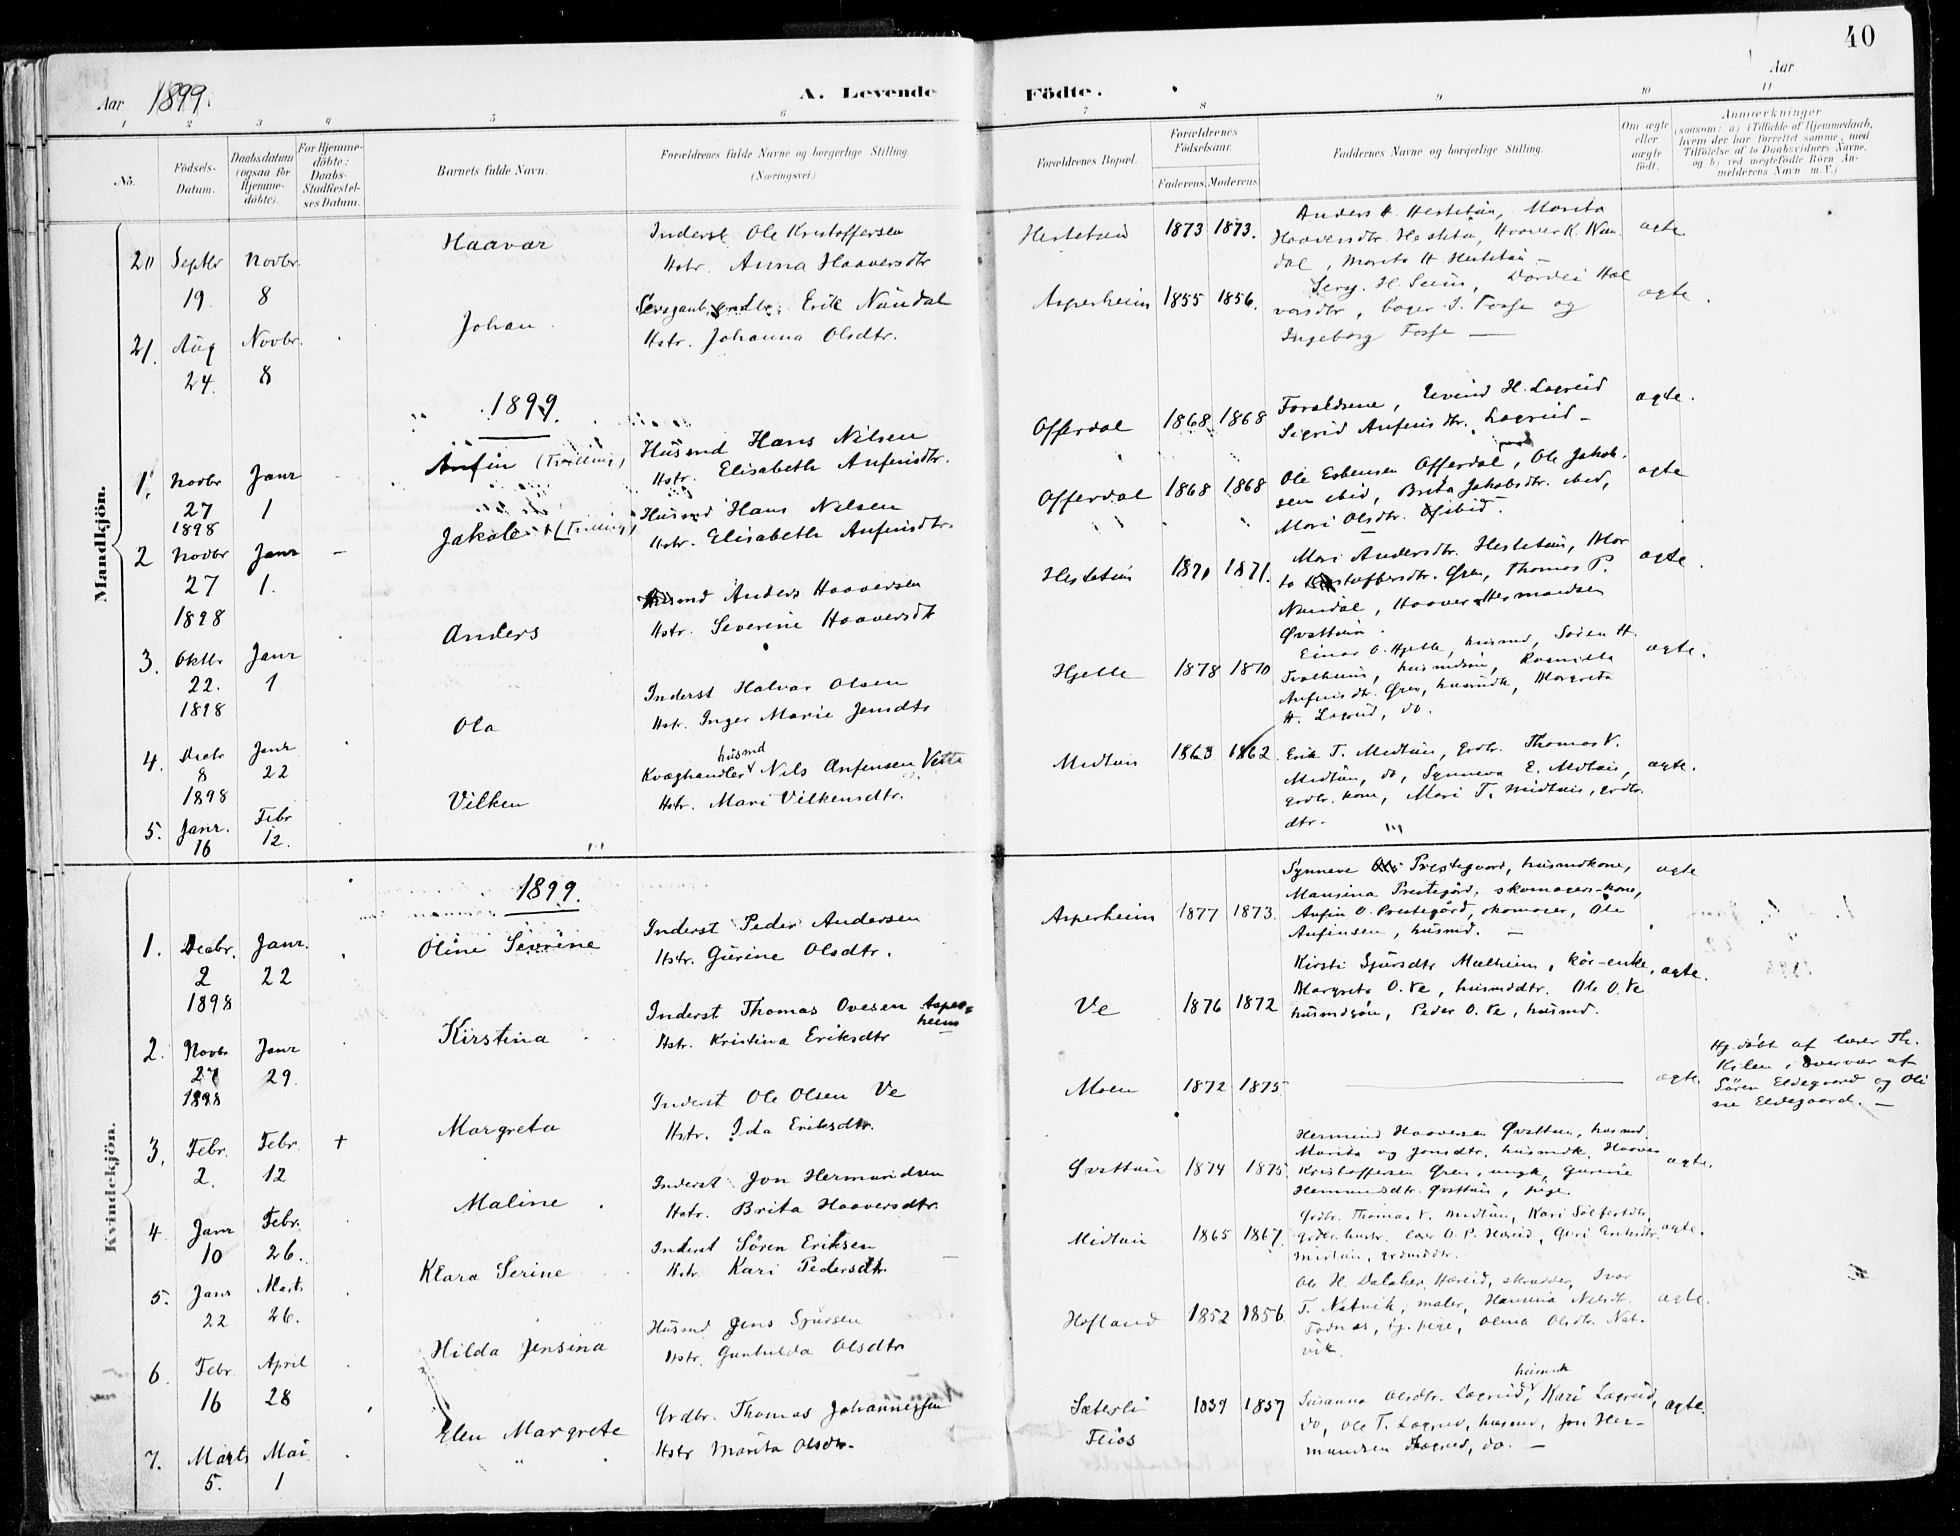 40
Aar 1899.
A. Levende
Födte.
Aar
1 2 3 4 5 6
7 8 9 10 11
No.
Födsels-
Datum.
Daabsdatum
(ogsaa for
Hjemme-
döbte).
For Hjemme-
döbte:
Daabs-
Stadfæstel-
ses Datum.
Barnets fulde Navn.
Forældrenes fulde Navne og borgerlige Stilling.
(Næringsvei.)
Forældrenes Bopæl.
Forældrenes
Födselsaar.
Faderens. Moderens.
Faddernes Navne og borgerlige Stilling.
Om ægte
eller
uægte
födt.
Anmærkninger
(saasom: a) i Tilfælde af Hjemmedaab,
hvem der har forrettet samme, med
Tilföielse af to Daabsvidners Navne,
og b) ved uægtefödte Börn An-
melderens Navn m. V.)
Mandkjön.
20 Septbr 19. Novbr. 8
Haavar
Inderst Ole Kristoffersen
Hstr. Anna Haaversdtr
Hestetun 1873 1873.
Anders H. Hestetun, Marita
Haaversdtr. Hestetun, Haaver K. Nun-
dal, Marita H. Hestetun
ægte
21. Aug 24. Novbr. 8
Johan
Erik Nundal
Hstr. Johanna Olsdtr.
Asperheim 1855 1856.
Dordei Hal
vorsdtr, Fosse og
Ingeborg Fosse
ægte
1899.
1. Novbr 27 1898 Janr 1
Anfin (Tvilling)
Husmd Hans Nilsen
Hstr. Elisabeth Anfinsdtr.
Offerdal 1868 1868
Forældrene, Eivind H. Lægreid
Sigrid Anfinsdtr. Lægreid
ægte.
2 Novbr 27 1898 Janr 1.
Jakob (Tvilling)
Husmd Hans Nilsen
Hstr. Elisabeth Anfinsdtr.
Offerdal 1868 1868
Ole Esbensen Offerdal, Ole Jakob-
sen ibid, Brita Jakobsdtr. ibid,
Mari Olsdtr. ibid.
ægte
3. Oktbr 22. 1898 Janr 1
Anders
Husmd Anders Haaversen
Hstr. Severine Haaversdtr
Hestetun 1871.
Mari Andersdtr. Hestetun, Mari
ta Kristoffersdtr. Øren, Thomas P.
Nundal, Haaver Hermundsen
Øvsttun.
ægte.
4. Decbr 8 1898 Janr 22
Ola
Inderst Halvar Olsen
Hstr. Inger Marie Jensdtr
Hjelle 1878 1870
Einar O. Hjelle, husmd, Søren H.
husmdsøn, Ragnilda
Anfinsdtr. Øren, husmdk, Margreta
H. Lægreid, do.
ægte.
5. Janr. 16 Febr 12.
Vilken
husmd
Kvæghandler Nils Anfinsen Vette
Hstr. Mari Vilkensdtr.
Midtun 1863 1862.
Erik T. Midtun, grdbr. Thomas V.
Midtun, do, Synneva E. Midtun,
grdbr. kone, Mari T. Midtun, grdbr.
dtr.
ægte.
Kvindekjön.
1899.
1. Decbr. 2 1898 Janr. 22
Oline Severine
Inderst Peder Andersen
Hstr. Gurine Olsdtr.
Asperheim 1877 1873.
Synneve Prestegaard, husmdkone,
Mansina Prestegård, skomager-kone,
Anfin O. Prestegård, skomager, Ole
Anfinsen, husmd.
ægte
2. Novbr 27 1898 Janr 29.
Kirstina
Inderst Thomas Ovesen Asper-
heim
Hstr. Kristina Eriksdtr
Ve 1876 1872
Kirsti Sjursdtr Melheim, kår-enke,
Margreta O. Ve, husmddtr. Ole O. Ve
husmdsøn, Peder O. Ve, husmd.
ægte.
3. Febr. 2. Febr. 12 +
Margreta
Inderst Ole Olsen Ve
Hstr. Ida Eriksdtr.
Moen 1872 1875
ægte.
Hj. døbt af lærer Th.
Kilen i overvær af
Sören Eldegaard og Oli
ne Eldegaard.
4. Janr 10 Febr. 26.
Maline
Inderst Jon Hermundsen
Hstr. Brita Haaversdtr.
Øvsttun 1874 1875
Hermund Haaversen Øvsttun, husmd.
Marita Jonsdtr, husmdk, Haaver
Kristoffersen Øren, ungk, Gurine
Hermundsdtr. Øvsttun, pige
ægte.
5. Janr 22 Marts 26.
Klara Serine
Inderst Søren Eriksen
Hstr. Kari Pedersdtr.
Midtun 1865 1867.
Grdbr. Thomas V. Midtun, Kari Solfestdtr,
grdbr. hustr. Midtun, grdmddtr.
ægte.
6. Febr. 16 April 28
Hilda Jensina
Husmd Jens Sjursen
Hstr. Gunhilda Olsdtr
Hofland 1852 1856.
Ole H. Dalaker, skrædder, Ivar
T. Natvik, maler, Hansina Nilsdtr.
Fodnæs, pige, Olina Olsdtr. Nat-
vik.
ægte.
7. Marts 5. Mai 1
Elen Margrete
Grdbr. Thomas Johannessen
Hstr Marita Olsdtr.
Sæterli
Feios 1859 1857
husmdk
Susanna Olsdtr. Lægreid, Kari Lægreid,
do, Ole T. Lægreid, husmd, Jon Her-
mundsen Lægreid, do.
ægte.